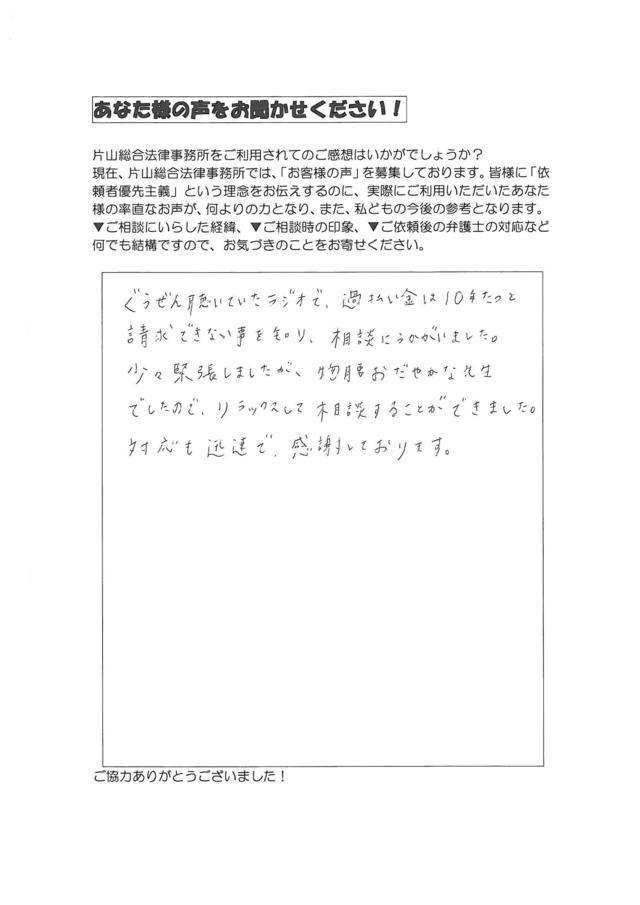 あなた様の声をお聞かせください！
片山総合法律事務所をご利用されてのご感想はいかがでしょうか？
現在、片山総合法律事務所では、「お客様の声」を募集しております。皆様に「依
頼者優先主義」という理念をお伝えするのに、実際にご利用いただいたあなた
様の率直なお声が、何よりの力となり、また、私どもの今後の参考となります。
▼ご相談にいらした経緯、▼ご相談時の印象、▼ご依頼後の弁護士の対応など
何でも結構ですので、お気づきのことをお寄せください。
ぐうぜん聴いていたラジオで、過払い金は10年たつと
請求できない事を知り、相談にうかがいました。
少々緊張しましたが、物腰おだやかな先生
でしたので、リラックスして相談することができました。
対応も迅速で、感謝しております。
ご協力ありがとうございました！